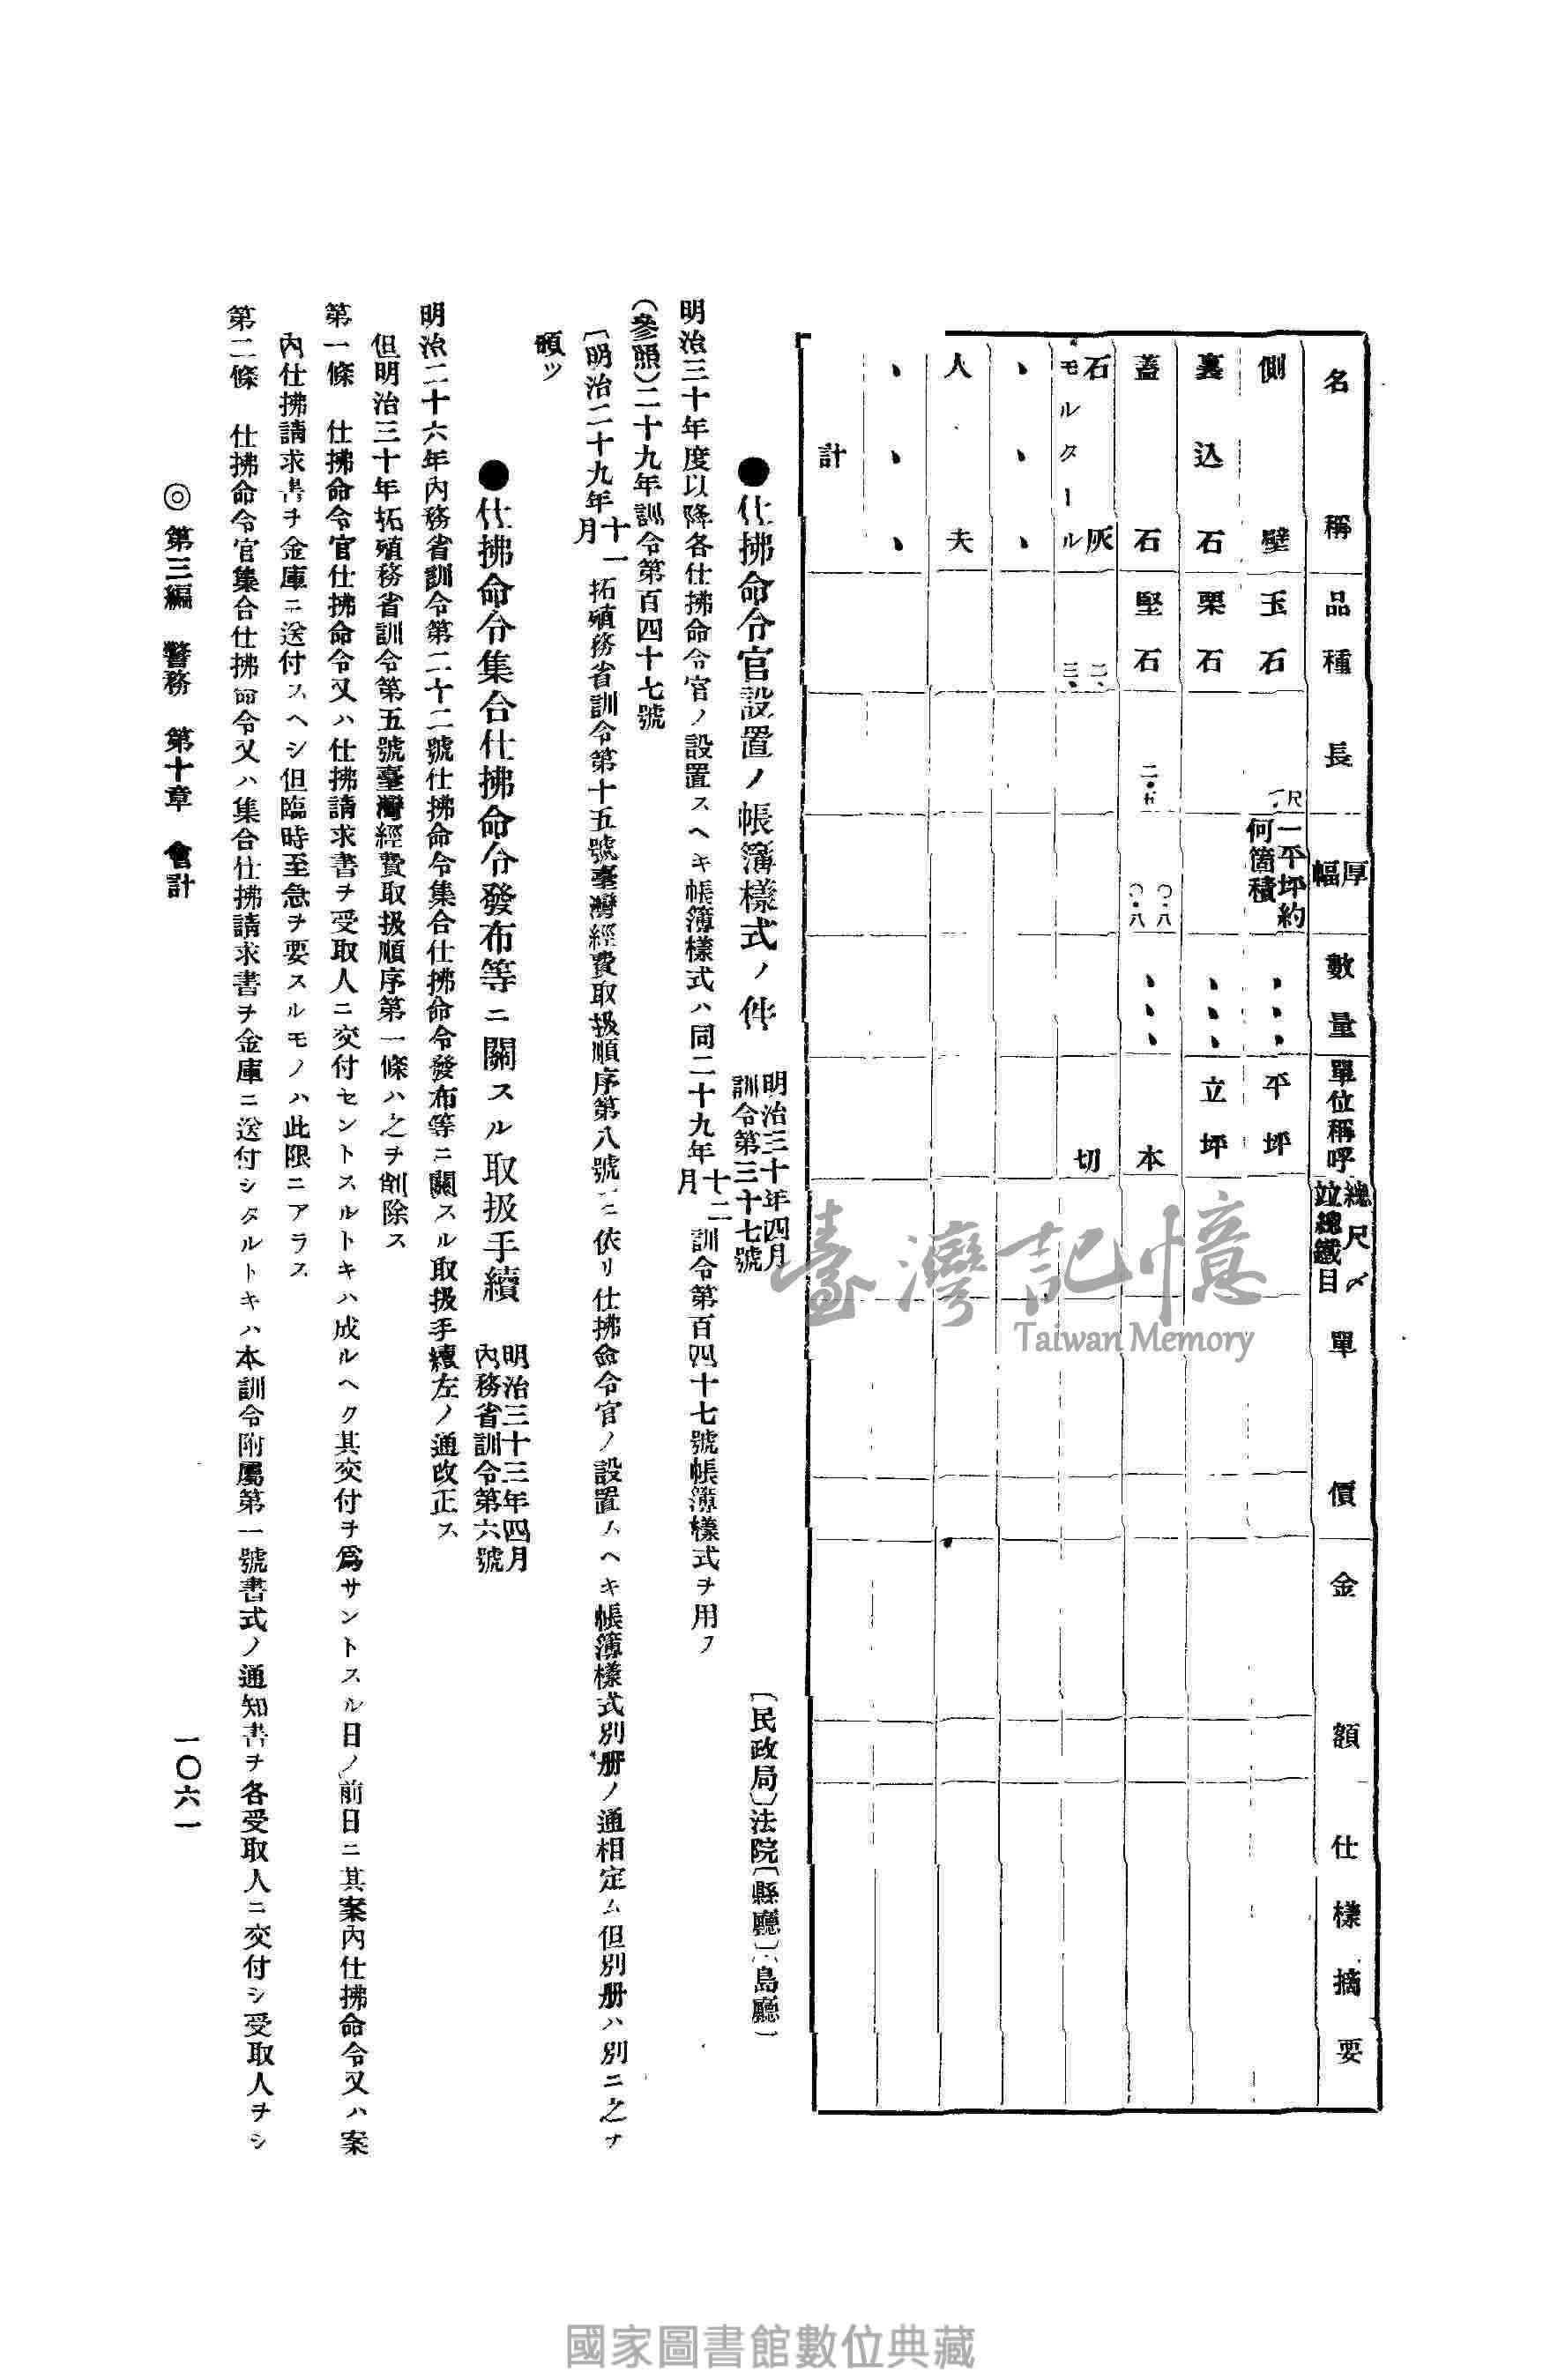 名稱 品種 長 厚幅 數量 單位稱呼 總尺〆竝總鐵目 單價 金額 仕樣摘要
側壁 玉石 尺 一平坪約何箇積 、、、 平坪
裏込石 栗石 、、、 立坪
蓋石 堅石 二・五 〇・八 〇・八 、、、 本
石灰モルタール 二、三、 切
、、、
人夫
、、、
計
●仕拂命令官設置ノ帳簿樣式ノ件 明治三十年四月訓令第三十七號
〔民政局〕法院〔縣廳〕島廳
明治三十年度以降各仕拂命令官ノ設置スヘキ帳簿樣式ハ同二十九年十二月訓令第百四十七號帳簿樣式ヲ用フ
(參照)二十九年訓令第百四十七號
〔明治二十九年十一月拓殖務省訓令第十五號臺灣經費取扱順序第八號ニ依リ仕拂命令官ノ設置ムヘキ帳簿樣式別册ノ通相定ム但別册ハ別ニ之ヲ
頒ツ
●仕拂命令集合仕拂命令發布等ニ關スル取扱手續 明治三十三年四月內務省訓令第六號
明治二十六年內務省訓令第二十二號仕拂命令集合仕拂命令發布等ニ關スル取扱手續左ノ通改正ス
但明治三十年拓殖務省訓令第五號臺灣經費取扱順序第一條ハ之ヲ削除ス
第一條 仕拂命令官仕拂命令又ハ仕拂請求書ヲ受取人ニ交付セントスルトキハ成ルヘク其交付ヲ爲サントスル日ノ前日ニ其案內仕拂命令又ハ案
內仕拂請求書ヲ金庫ニ送付スヘシ但臨時至急ヲ要スルモノハ此限ニアラス
第二條 仕拂命令官集合仕拂命令又ハ集合仕拂請求書ヲ金庫ニ送付シタルトキハ本訓令附屬第一號書式ノ通知書ヲ各受取人ニ交付シ受取人ヲシ
◎第三編 警務 第十章 會計
一〇六一
臺灣記憶
Taiwan Memory
國家圖書館數位典藏